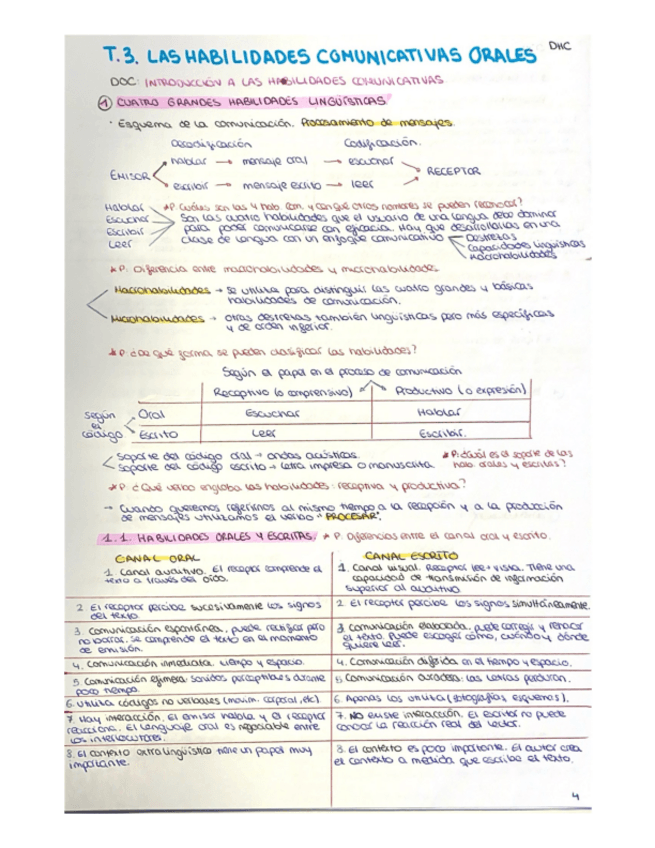 T.3. LAS HABILIDADES COMUNICATIVAS ORALES DHC
DOC: INTRODUCCIÓN A LAS HABILIDADES COMUNICATIVAS
1 CUATRO GRANDES HABILIDADES LINGÜÍSTICAS
· Esquema de la comunicación. Procesamiento de mensajes.
Decodificación Codificación.
hablar → mensaje oral → escuchar
EMISOR RECEPTOR
escribir → mensaje escrito → leer
Hablar *P. Cuáles son las 4 hab com. y con qué otros nombres se pueden reconocer?
Escuchar Son las cuatro habilidades que el usuario de una lengua debe dominar
Escribir para poder comunicarse con eficacia. Hay que desarrollarlas en una
Leer clase de lengua con un enfoque comunicativo Destrezas
Capacidades lingüísticas
Macrohabilidades
*P. Diferencia entre macrohabilidades y microhabilidades.
Macrohabilidades → se utiliza para distinguir las cuatro grandes y básicas
habilidades de comunicación.
Microhabilidades → otras destrezas también lingüísticas pero más específicas
y de orden inferior.
*P. ¿De qué forma se pueden clasificar las habilidades?
Según el papel en el proceso de comunicación
Receptivo (o comprensivo) Productivo (o expresión)
Según el código
Oral Escuchar Hablar
Escrito Leer Escribir.
Soporte del código oral → ondas acústicas. *P: ¿Cuál es el soporte de las
Soporte del código escrito → letra impresa o manuscrita. hab. orales y escritas?
*P. ¿Qué verbo engloba las habilidades: receptiva y productiva?
→ Cuando queremos referirnos al mismo tiempo a la recepción y a la producción
de mensajes utilizamos el verbo "PROCESAR".
1.1. HABILIDADES ORALES Y ESCRITAS. *P. Diferencias entre el canal oral y escrito.
CANAL ORAL
1. Canal auditivo. El receptor comprende el
texto a través del oído.
CANAL ESCRITO
1. Canal visual. Receptor lee + vista. Tiene una
capacidad de transmisión de información
superior al auditivo
2. El receptor percibe sucesivamente los signos
del texto
2. El receptor percibe los signos simultáneamente.
3. Comunicación espontánea, puede rectificar pero
no borrar. Se comprende el texto en el momento
de emisión.
3. Comunicación elaborada, puede corregir y rehacer
el texto. Puede escoger cómo, cuándo y dónde
quiere leer.
4. Comunicación inmediata tiempo y espacio.
4. Comunicación diferida en el tiempo y espacio.
5. Comunicación efímera. Sonidos perceptibles durante
poco tiempo.
5. Comunicación duradera. Las letras perduran.
6. Utiliza códigos no verbales (movim. corporal, etc)
6. Apenas los utiliza (fotografías, esquemas).
7. Hay interacción. El emisor habla y el receptor
reacciona. El lenguaje oral es negociable entre
los interlocutores.
7. NO existe interacción. El escritor no puede
conocer la reacción real del lector.
8. El contexto extralingüístico tiene un papel muy
importante.
8. El contexto es poco importante. El autor crea
el contexto a medida que escribe el texto.
4